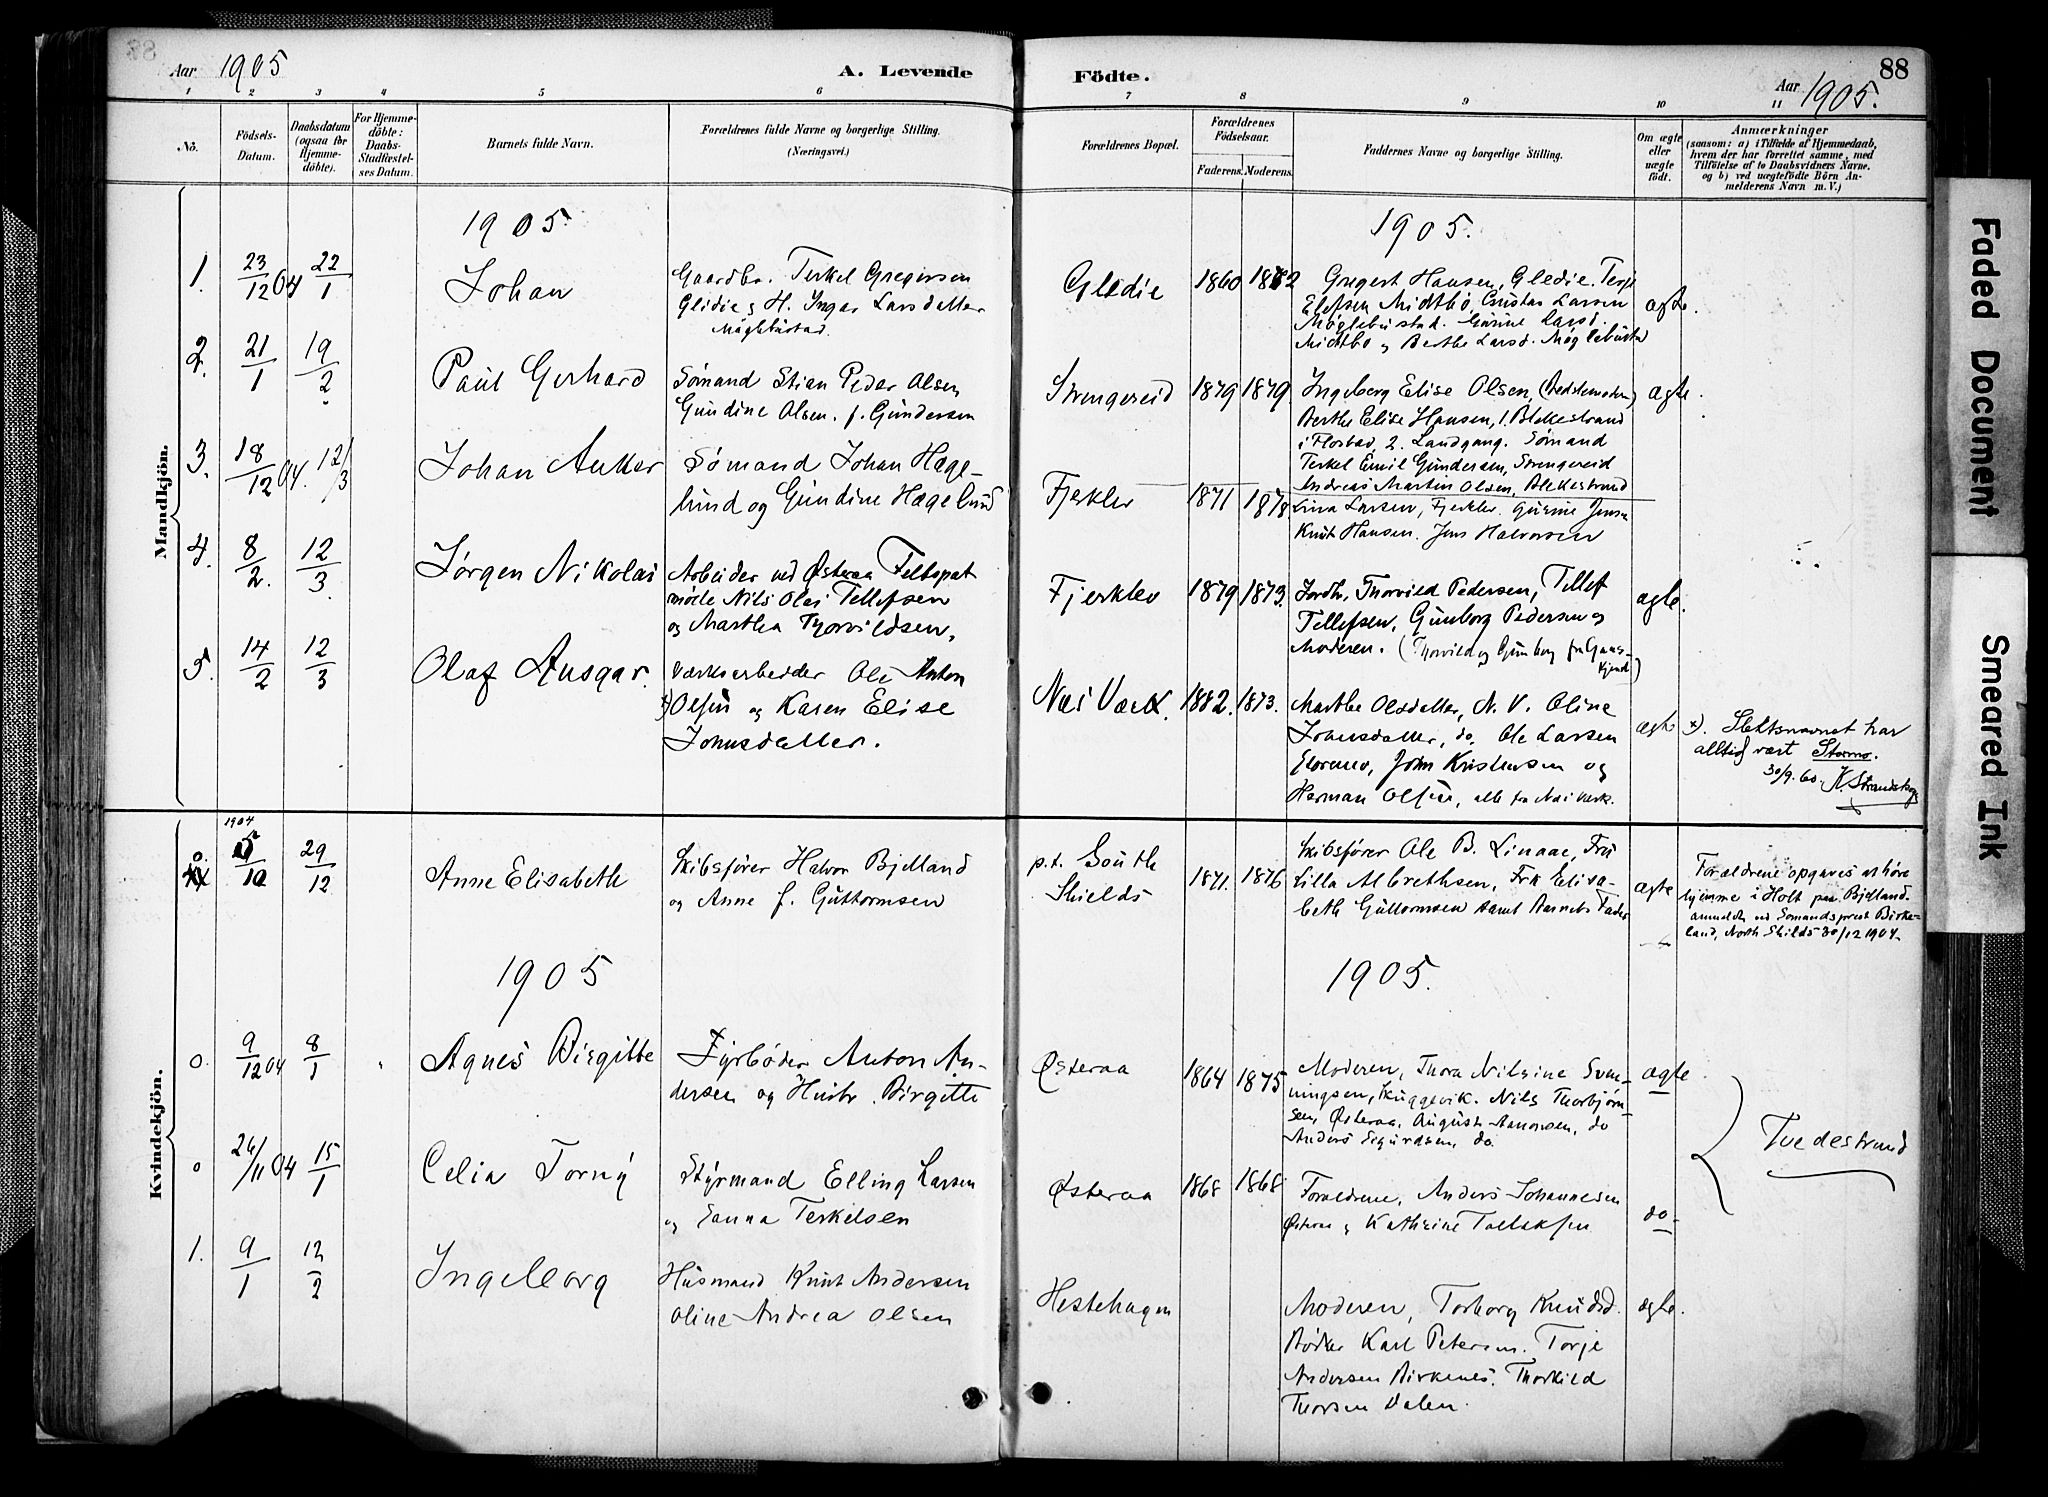 Aar 1905
A. Levende
Födte.
88
Aar 1905.
1 2 3 4 5 6 7 8 9 10 11
No.
Födsels-
Datum.
Daabsdatum
(ogsaa for
Hjemme-
döbte).
For Hjemme-
döbte:
Daabs-
Stadfæstel-
ses Datum.
Barnets fulde Navn.
Forældrenes fulde Navne og borgerlige Stilling.
(Næringsvei.)
Forældrenes Bopæl.
Forældrenes
Födselsaar.
Faderens. Moderens.
Faddernes Navne og borgerlige Stilling.
Om ægte
eller
uægte
födt.
Anmærkninger
(saasom: a) i Tilfælde af Hjemmedaab,
hvem der har forrettet samme, med
Tilföielse af to Daabsvidners Navne.
og b) ved uægtefödte Börn An-
melderens Navn m. V.)
Mandkjön.
1905.
1905.
1. 23/12 04 22/1
Johan
Gaardbr. Terkel Gregersen
Glidie & H. Inger Larsdatter
Møglebustad.
Gledie 1860 1882
Gregert Hansen, Gledie. Terje
Elefsen Midtbø Gustav Larsen
Møglebustad. Gurine Larsd.
Midtbø og Berthe Larsd. Møglebustad
ægte.
2. 21/1 19/2
Paul Gerhard
Sømand Stian Peder Olsen
Gundine Olsen. f. Gundersen
Strengereid 1879 1879
Ingeborg Elise Olsen, (Bedstemoren)
Berthe Elise Hansen, 1. Blekestrand
i Flostad, 2. Landgang. Sømand
Terkel Emil Gundersen, Strengereid
Andreas Martin Olsen, Blekestrand
ægte.
3. 18/12 04. 12/3
Johan Anker
Sømand Johan Hæge-
lund og Gundine Hægelund
Fjerklev 1871 1878
Lina Larsen, Fjerklev. Gurine Jensen
Knut Hansen. Jens Halvorsen
4. 8/2. 12/3.
Jørgen Nikolai
Arbeider ved Østeraa Feltspat
mølle Nils Olai Tellefsen
og Martha Thorvildsen.
Fjerklev 1879 1873.
Jordbr. Thorvild Pedersen, Tellef
Tellefsen, Gunborg Pedersen og
Moderen. (Thorvild og Gunborg fra Gaas-
kjend)
ægte.
5. 14/2 12/3
Olaf Ansgar.
Værksarbeider Ole Anton
x) Olsen og Karen Elise
Johnsdatter.
Næs Værk. 1882. 1873.
Marthe Olsdatter, N. V. Oline
Johnsdatter, do. Ole Larsen
John Kristensen og
Herman Olsen, alle fra Næs Værk.
ægte
x). Slektsnavnet har
alltid vært Stormo.
30/9.60. K. Strandskog
Kvindekjön.
1904
0. 5/10 29/12
Anne Elisabeth
Skibsfører Halvor Bjelland
og Anne f. Guttormsen
p.t. South
Shields
1871. 1876
Skibsfører Ole B. Linaae, Fru
Lilla Albrethsen, Frk Elisa-
beth Guttormsen samt Barnets Fader
ægte
Forældrene opgaves at høre
hjemme i Holt paa Bjelland.
anmeldt ved Sømandsprest Birke-
land, North Shilds 30/12 1904.
1905
1905.
0. 9/12 04 8/1
Agnes Birgitte
Fyrbøder Anton An-
dersen og Hustr. Birgitte
Østeraa 1864 1875
Moderen, Thora Nilsine Svem-
ningsen, Skuggevik. Nils Thorbjørn-
sen, Østeraa, August Aanonsen, do
Anders Sigurdsen, do.
ægte
Tvedestrand
0 26/11 04 15/1
Celia Torny
Styrmand Elling Larsen
og Hanna Terkelsen
Østeraa 1868 1868
Forældrene, Anders Johannesen
Østeraa og Kathrine Tollaksen
do-
1. 9/1 12/2
Ingeborg
Husmand Knut Andersen
Oline Andrea Olsen
Hestehagen
Moderen, Torborg Knudsd.
Bødker Karl Petersen. Torje
Andersen Birkenes. Thorkild
Thorsen Dalen.
ægte.
Faded Document
Smeared Ink